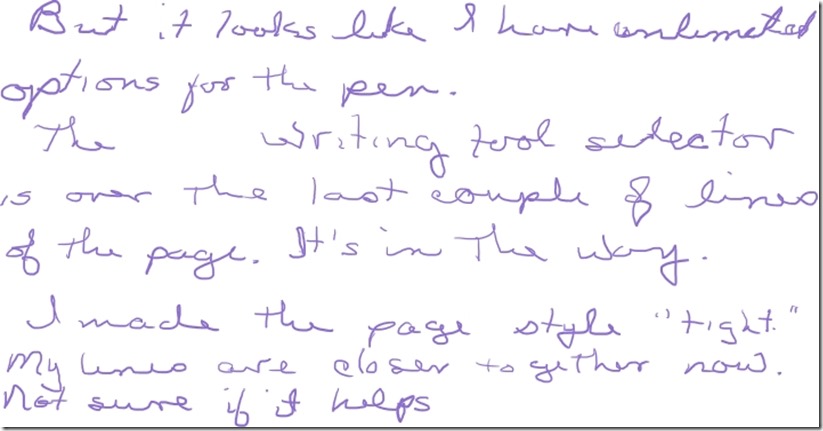 But it looks like I have unlimited
options for the pen.
The writing tool selector
is over the last couple of lines
of the page. It's in the way.
I made the page style "tight."
My lines are closer together now.
Not sure if it helps